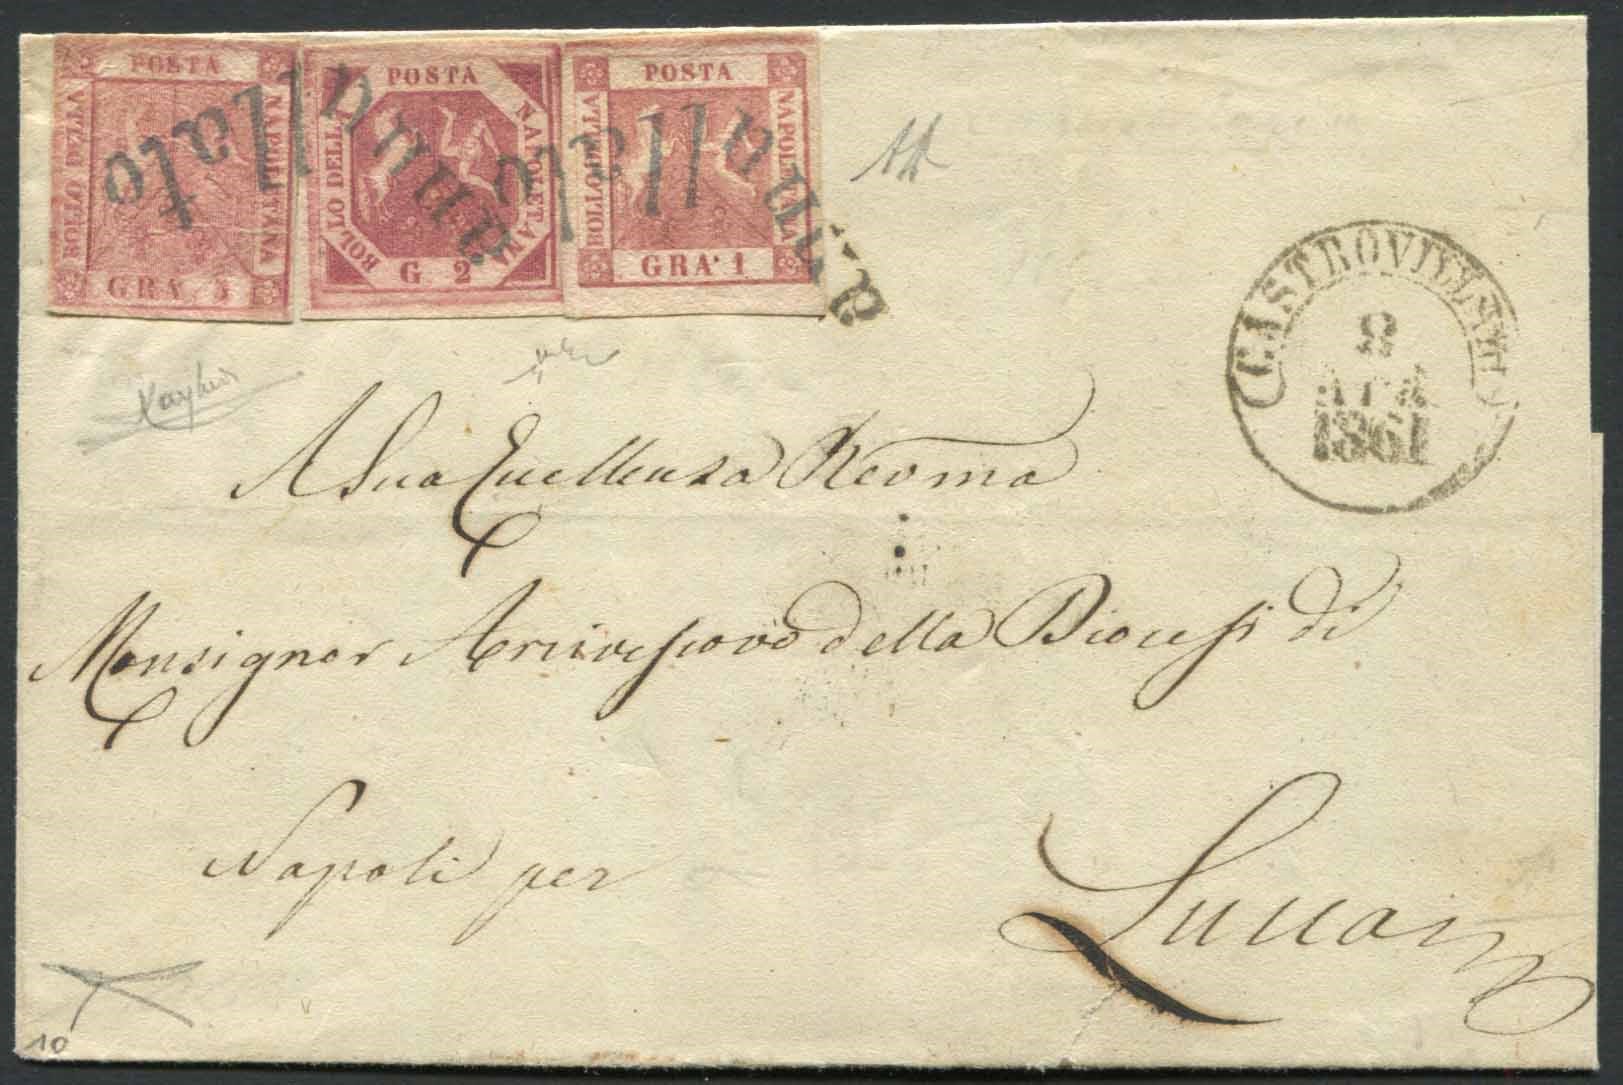 POSTA
BOLLO DELLA
NAPOLITANA
GRA
POSTA
BOLLO DELLA
NAPOLETANA
G 2
POSTA
BOLLO DELLA
NAPOLETANA
GRA. 1
annullato
annullato
CASTROVILLARI
8
APR
1861
A Sua Eccellenza Revma
Monsignor Arcivescovo della Diocesi di
Napoli per
Lucca
10